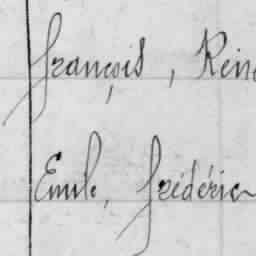 françois, René
Emile, frédéric